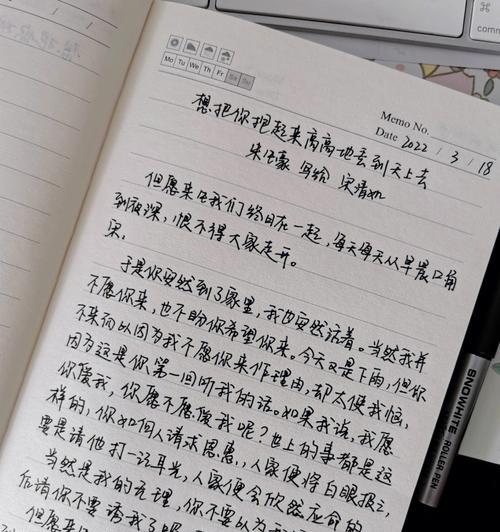 comm
Mo Tu We Th Fr Sa Su
Memo No.
Date 2022 / 3 / 18
想把你抱起来高高地丢到天上去
朱生豪 写给 宋清如
但愿来生我们终日在一起，每天每天从早晨口角
到夜深，恨不得大家走开。
宋：
于是你安然到了家里，我也安然活着。当然我并
不愿你来，也不盼你希望你来。今天又是下雨，但你
不来而以因为我不愿你来作理由，却太使我恼，
因为这是你第一回听我的话。如果我说，我愿
你爱我，你愿不愿爱我呢？世上的事都是这
样的，你如向人请求恩惠，人家便将白眼报之，
要是请他打一记耳光，人家便会欣然应命的
当然是我的无理，你不要以为我
后请你不要诱我了吧
但愿来
SNOWHITE
ROLLER PEN